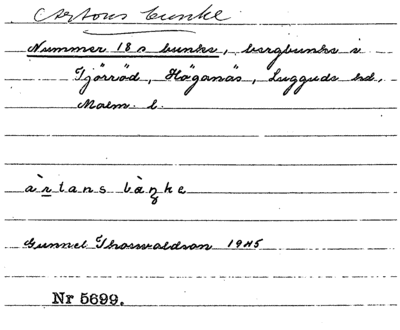 Artons bunke
Nummer 18s bunke, bergbunke i
Tjörröd, Höganäs, Lugguds hd,
Malm. l.
àrtans bàŋke
Gunnel Thorwaldson 1945
Nr 5699.